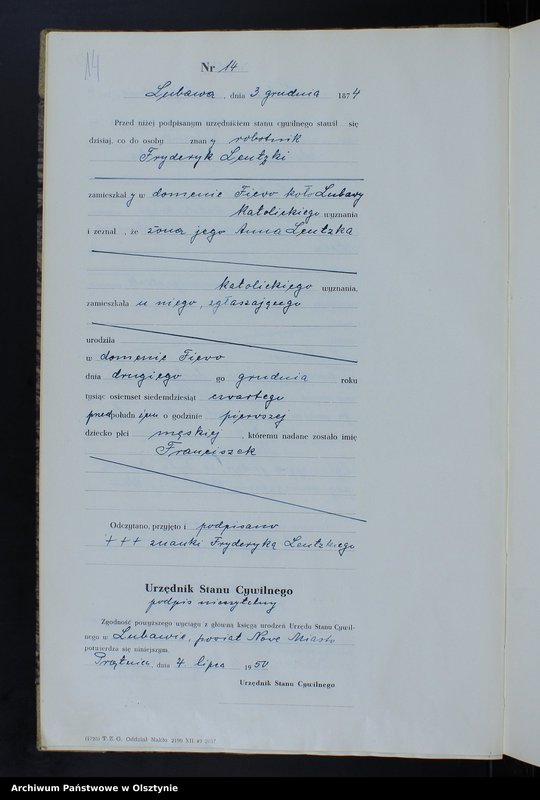 14
Nr 14
Lubawa, dnia 3 grudnia 1874
Przed niżej podpisanym urzędnikiem stanu cywilnego stawił się
dzisiaj, co do osoby znany robotnik
Fryderyk Lentzki
zamieszkały w domenie Fiewo koło Lubawy
katolickiego wyznania
i zeznał, że żona jego Anna Lentzka
katolickiego wyznania,
zamieszkała u niego, zgłaszającego
urodziła
w domenie Fiewo
dnia drugiego go grudnia roku
tysiąc osiemset siedemdziesiąt czwartego
przedpołudniem o godzinie pierwszej
dziecko płci męskiej, któremu nadane zostało imię
Franciszek
Odczytano, przyjęto i podpisano
+++ znaki Fryderyka Lentzkiego
Urzędnik Stanu Cywilnego
podpis nieczytelny
Zgodność powyższego wyciągu z główną księgą urodzeń Urzędu Stanu Cywil-
nego w Lubawie, powiat Nowe Miasto
potwierdza się niniejszym.
Prątnica, dnia 4 lipca 1950
Urzędnik Stanu Cywilnego
T. Z. G. Oddział Nakło
Archiwum Państwowe w Olsztynie